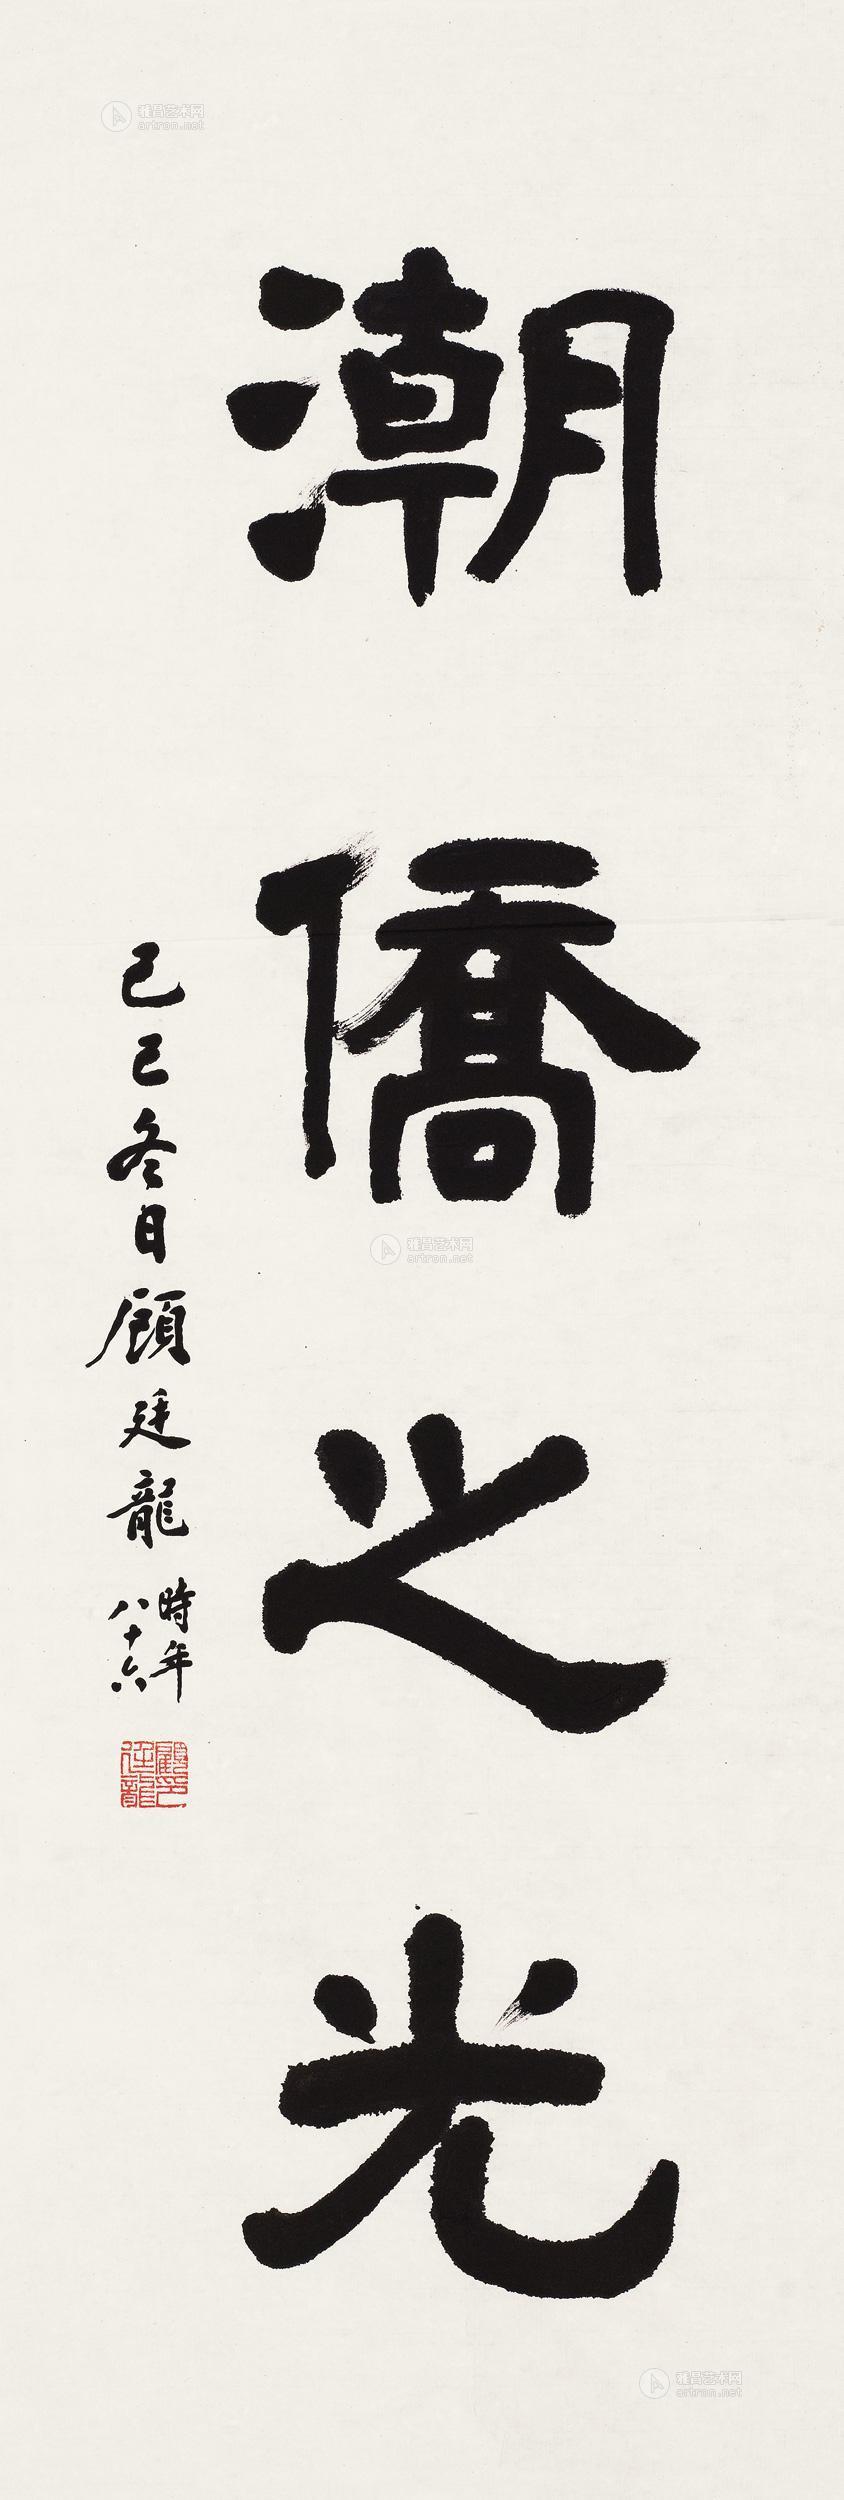 潮僑之光
己巳冬日顧廷龍
時年
八十六
顧印
廷龍
雅昌艺术网
artron.net
雅昌艺术网
artron.net
雅昌艺术网
artron.net